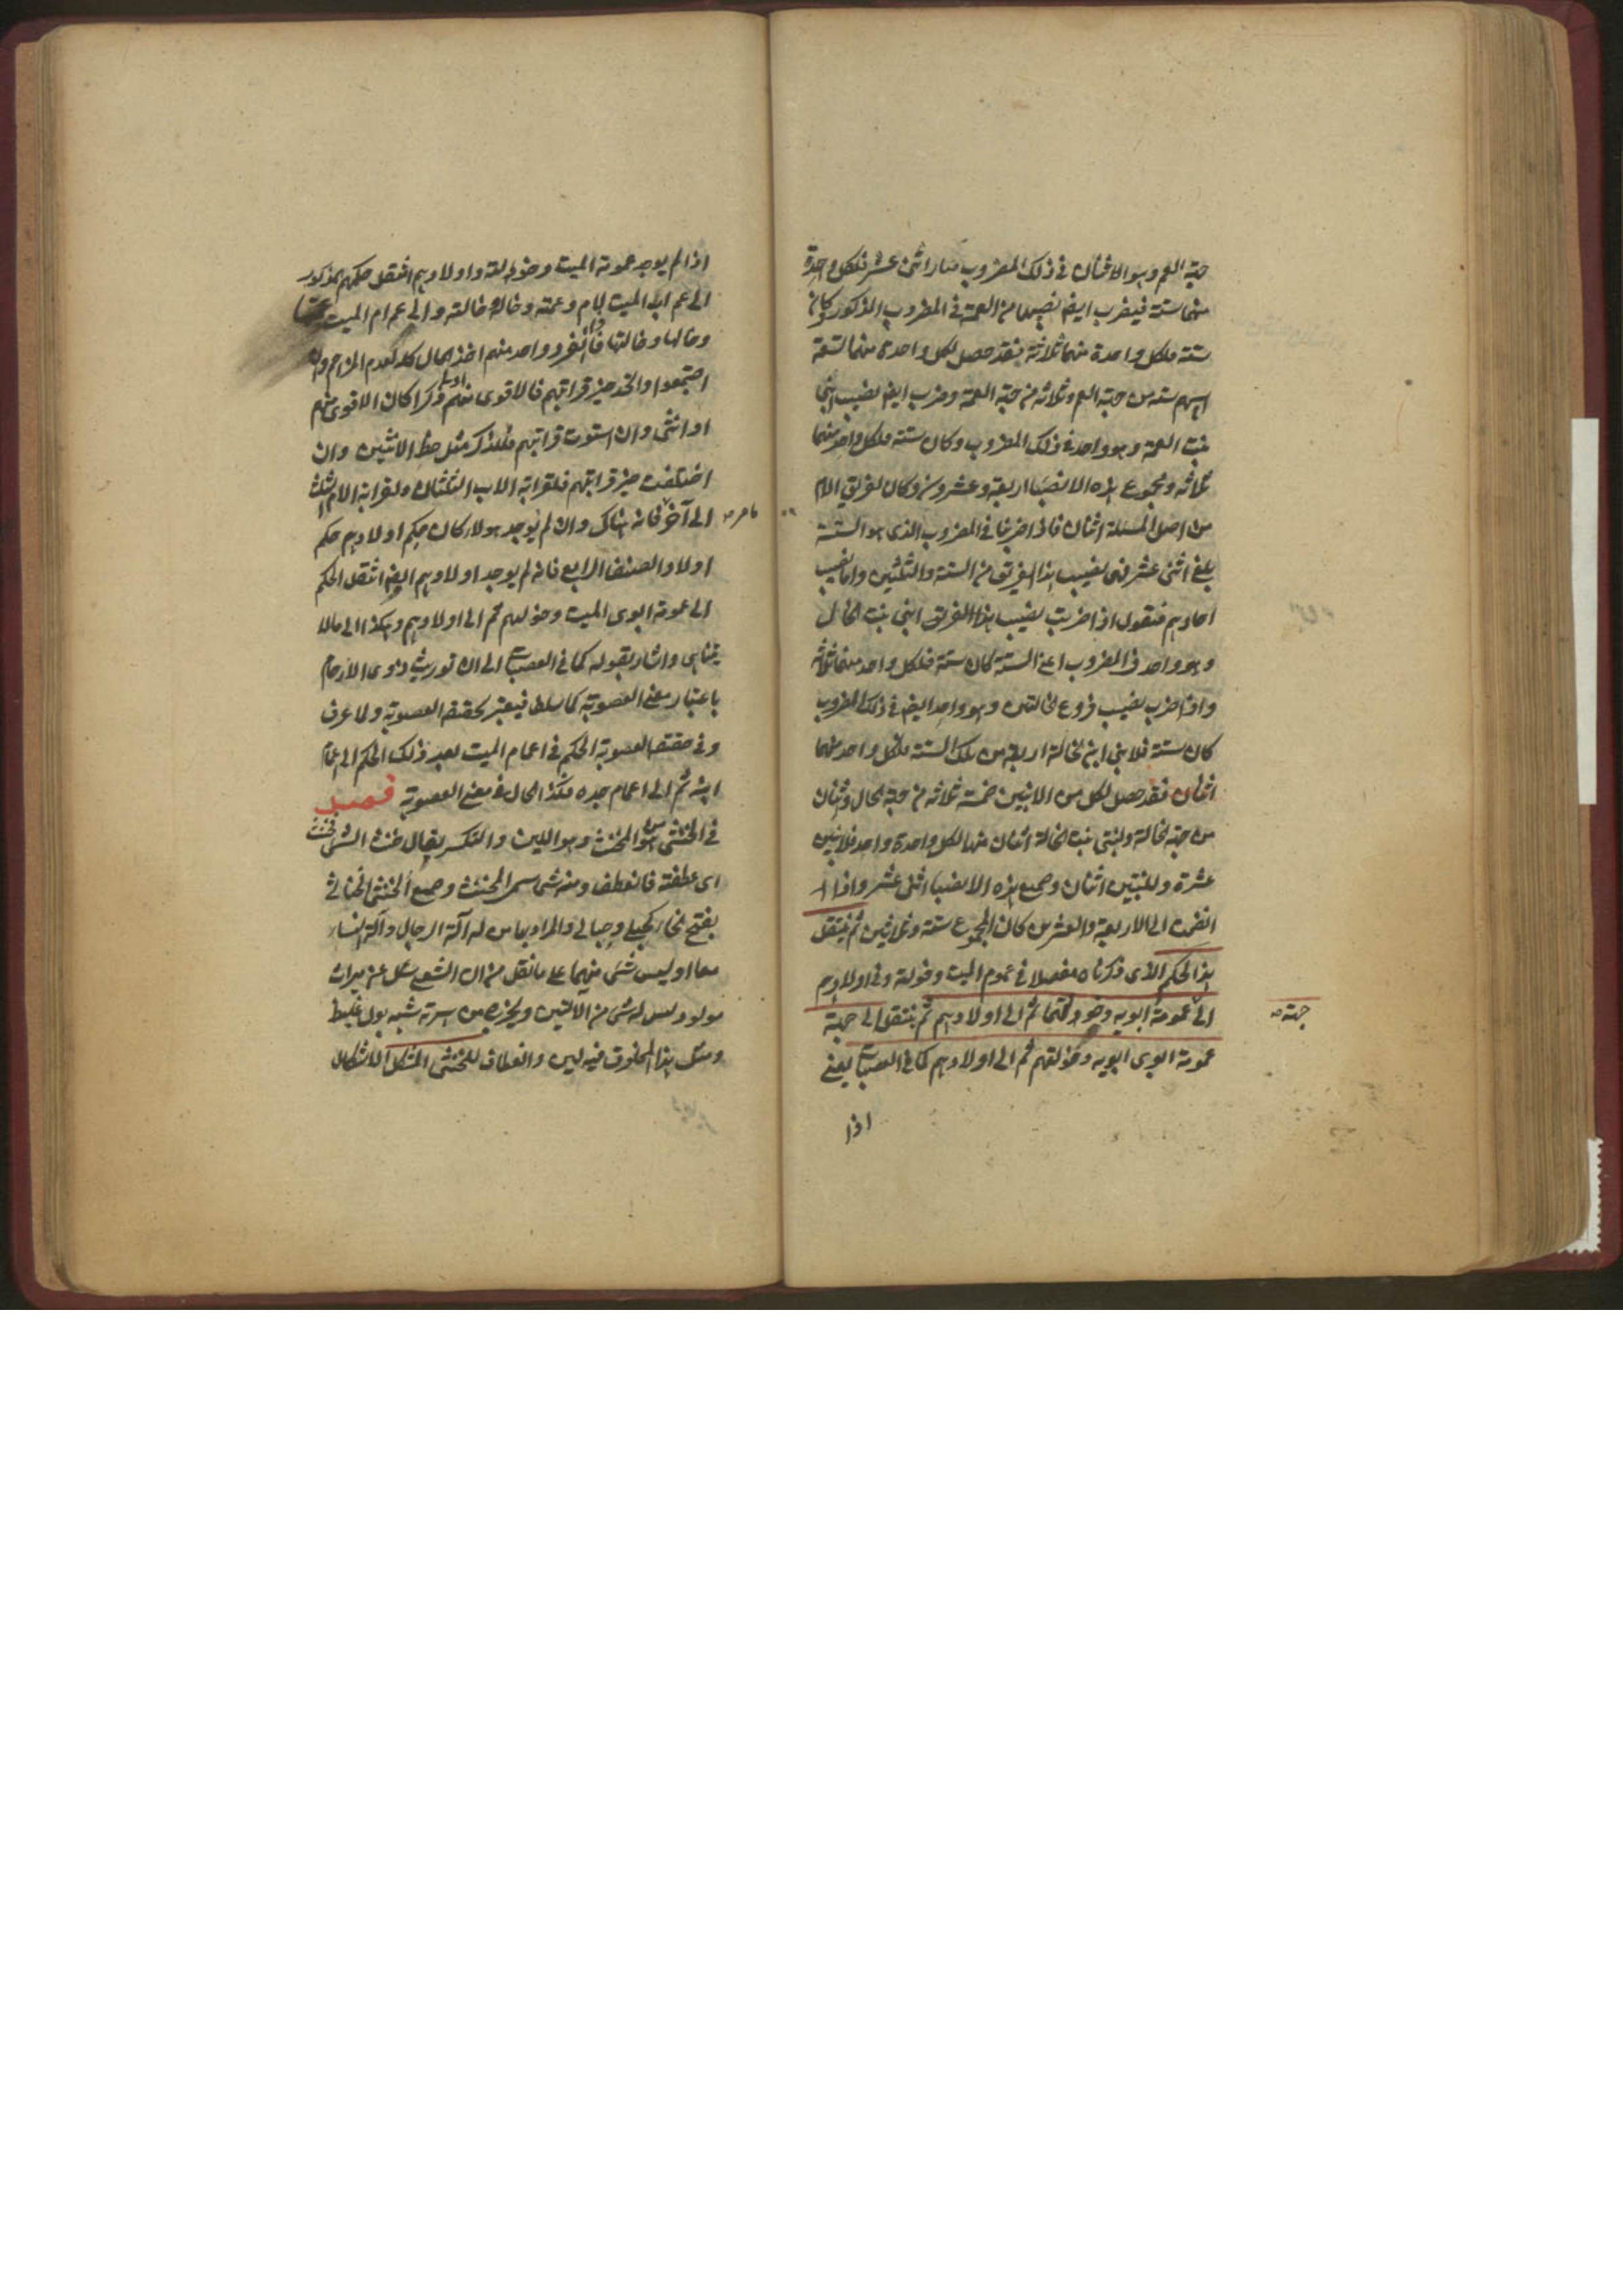 جهة العم وهو الاثنان فى ذلك المضروب صار اثنى عشر فلكل واحدة
منهما ستة فيضرب ايضا نصيبهما من العمة فى المضروب المذكور وكان
ستة فلكل واحدة منهما ثلاثة فقد حصل لكل واحدة منهما تسعة
اسهم ستة من جهة العم وثلاثة من جهة العمة وضرب ايضا نصيب ابنى
بنت العمة وهو واحد فى ذلك المضروب وكان ستة فلكل واحد منهما
ثلاثة ومجموع هذه الانصباء اربعة وعشرون وكان لفريق الام
من اصل المسئلة اثنان فاذا ضربنا فى المضروب الذى هو الستة
بلغ اثنى عشر فهى نصيب هذا الفريق من الستة والثلثين واما نصيب
احادهم فنقول اذا ضربت نصيب هذا الفريق ابنى بنت الخال
وهو واحد فى المضروب اعنى الستة كان ستة فلكل واحد منهما ثلاثة
واذا ضرب نصيب فروع الخالتين وهو واحد ايضا فى ذلك المضروب
كان ستة فلابنى ابن الخالة اربعة من تلك الستة فلكل واحد منهما
اثنان فقد حصل لكل من الابنين خمسة ثلاثة من جهة الخال واثنان
من جهة الخالة ولبنتى بنت الخالة اثنان منها لكل واحدة واحد فللابنين
عشرة وللبنتين اثنان وجميع هذه الانصباء اثنى عشر واذا
انضمت الى الاربعة والعشرين كان المجموع ستة وثلاثين ثم ينتقل
هذا الحكم الذى ذكرناه مفصلا فى عموم الميت وخولة وفى اولادهم
الى عمومة ابويه وخولتهما ثم الى اولادهم ثم ينتقل الى جهة
جهة صح
عمومة ابوى ابويه وخولتهم ثم الى اولادهم كما فى العصبات يعنى
اذا
اذا لم يوجد عمومة الميت وخولته واولادهم انتقل حكمهم المذكور
الى عم اب الميت لام وعمته وخاله وخالته والى عم ام الميت وعمتها
وخالها وخالتها فاذا انفرد واحد منهم اخذ المال كله لعدم المزاحم واذا
اجتمعوا واتحد حيز قرابتهم فالاقوى منهم اولى ذكرا كان الاقوى منهم
او انثى وان استوت قرابتهم فللذكر مثل حظ الانثيين وان
اختلفت حيز قرابتهم فلقرابة الاب الثلثان ولقرابة الام الثلث
ما مر صح
الى آخر فانه هناك وان لم يوجد هولاء كان حكم اولادهم حكم
اولاد الصنف الرابع فان لم يوجد اولادهم ايضا انتقل الحكم
الى عمومة ابوى الميت وخولهم ثم الى اولادهم وهكذا الى مالا
يتناهى واشار بقوله كما فى العصبات الى ان توريث ذوى الارحام
باعتبار معنى العصوبة كما سلف فيعتبر بحقيقة العصوبة ولما عرف
وفى حقيقة العصوبة الحكم فى اعمام الميت بعد ذلك الحكم الى اعمام
ابيه ثم الى اعمام جده فكذا الحال فى معنى العصوبة فصل
فى الخنثى هو من الخنث وهو اللين والتكسر يقال خنث الشئ فتخنث
اى عطفته فانعطف ومنه سمى المخنث وجمع الخنثى الخناثى
بفتح الخاء كحبلى وحبالى والمراد بها من له آلة الرجال وآلة النساء
معا او ليس شئ منهما على ما نقل من ان الشعبى سئل عن ميراث
مولود ليس له شئ من الآلتين ويخرج من سرته شبه بول غليظ
ومثل هذا المخلوق فيه لين وانعطاف للخنثى المشكل الاشكال